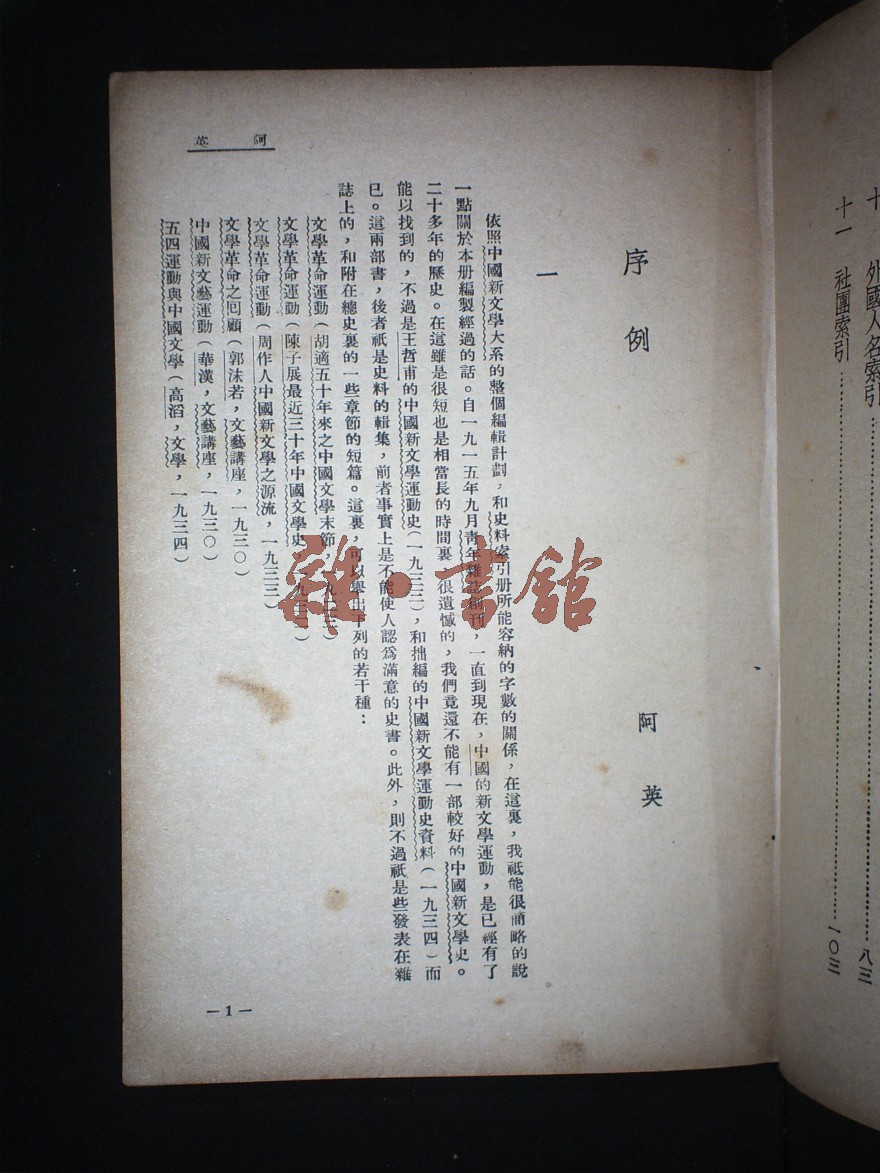 十　外國人名索引……八三
十一　社團索引……一〇三
序例
阿英
一
依照中國新文學大系的整個編輯計劃，和史料索引册所能容納的字數的關係，在這裏，我祇能很簡略的說
一點關於本册編製經過的話。自一九一五年九月青年雜誌創刊，一直到現在，中國的新文學運動，是已經有了
二十多年的歷史。在這雖是很短也是相當長的時間裏，很遺憾的，我們竟還不能有一部較好的中國新文學史。
能以找到的，不過是王哲甫的中國新文學運動史（一九三三），和拙編的中國新文學運動史資料（一九三四）而
已。這兩部書，後者祇是史料的輯集，前者事實上是不能使人認爲滿意的史書。此外，則不過祇是些發表在雜
誌上的，和附在總史裏的一些章節的短篇。這裏，可以舉出下列的若干種：
文學革命運動（胡適五十年來之中國文學末節，一九二三）
文學革命運動（陳子展最近三十年中國文學史，一九三一）
文學革命運動（周作人中國新文學之源流，一九三三）
文學革命之回顧（郭沫若，文藝講座，一九三〇）
中國新文藝運動（華漢，文藝講座，一九三〇）
五四運動與中國文學（高滔，文學，一九三四）
阿英
—1—
雜·書館